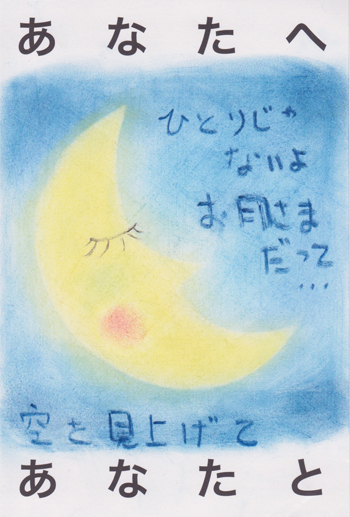 あなたへ
ひとりじゃ
ないよ
お月さま
だって
...
空を見上げて
あなたと